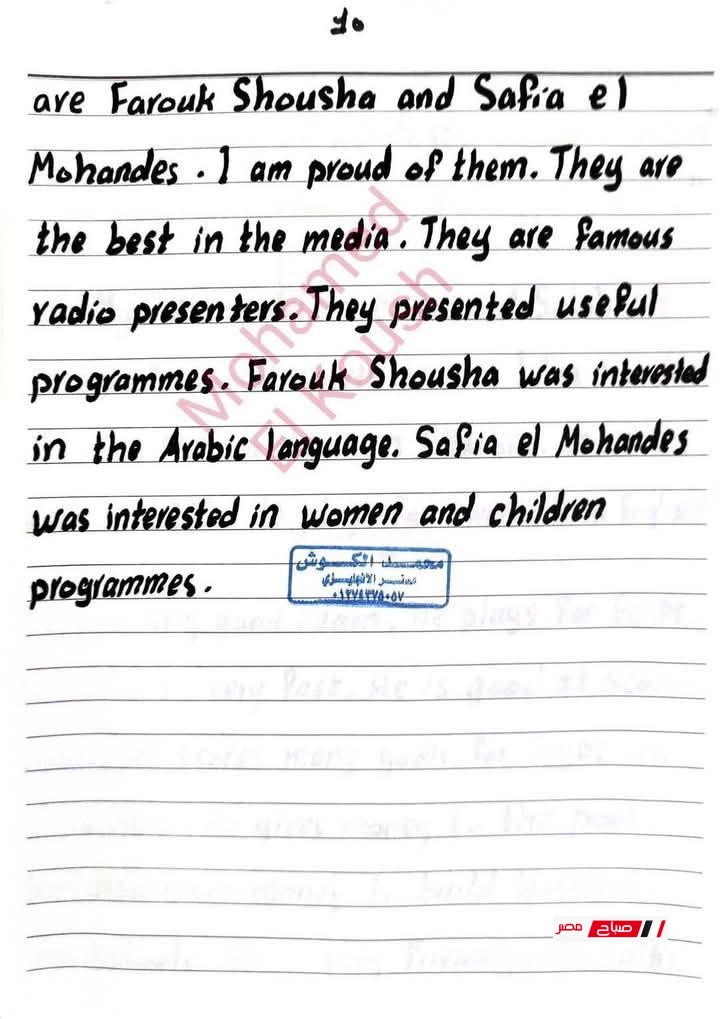 10
are Farouk Shousha and Safia el
Mohandes. I am proud of them. They are
the best in the media. They are famous
radio presenters. They presented useful
programmes. Farouk Shousha was interested
in the Arabic language. Safia el Mohandes
was interested in women and children
programmes.
Mohamed
El Koush
محمد الكوش
مستر الإنجليزي
٠١٢٧٨٣٧٥٠٥٧
صباح مصر